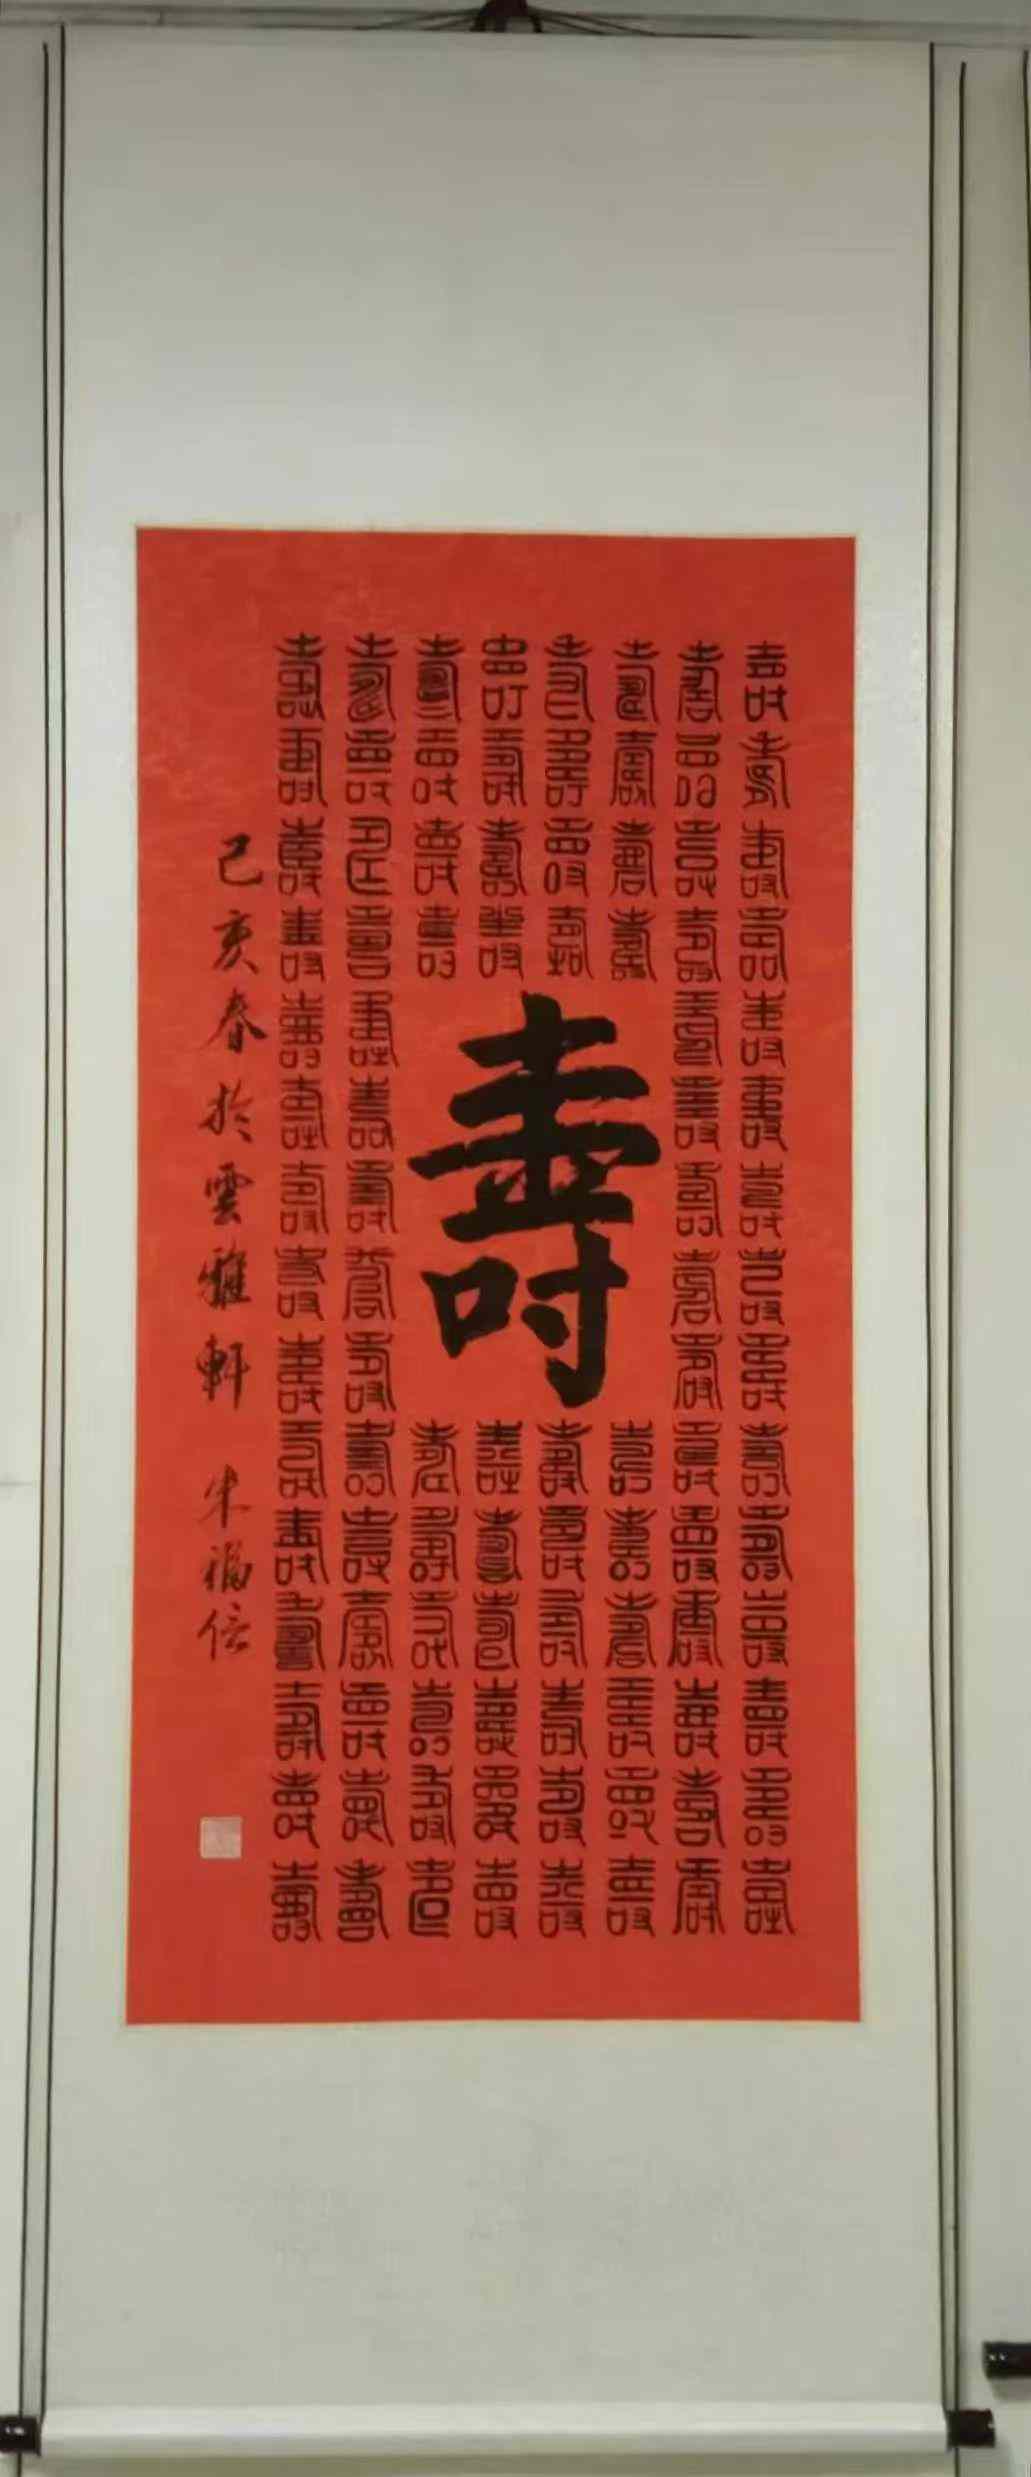 壽壽壽壽壽壽壽壽壽壽壽壽壽壽壽
壽壽壽壽壽壽壽壽壽壽壽壽壽壽壽
壽壽壽壽
壽壽壽壽
壽壽壽壽
壽壽壽壽
壽
壽壽壽壽壽壽
壽壽壽壽壽壽
壽壽壽壽壽壽
壽壽壽壽壽壽
壽壽壽壽壽壽壽壽壽壽壽壽壽壽壽
壽壽壽壽壽壽壽壽壽壽壽壽壽壽壽
己亥春於雲雅軒 朱福信